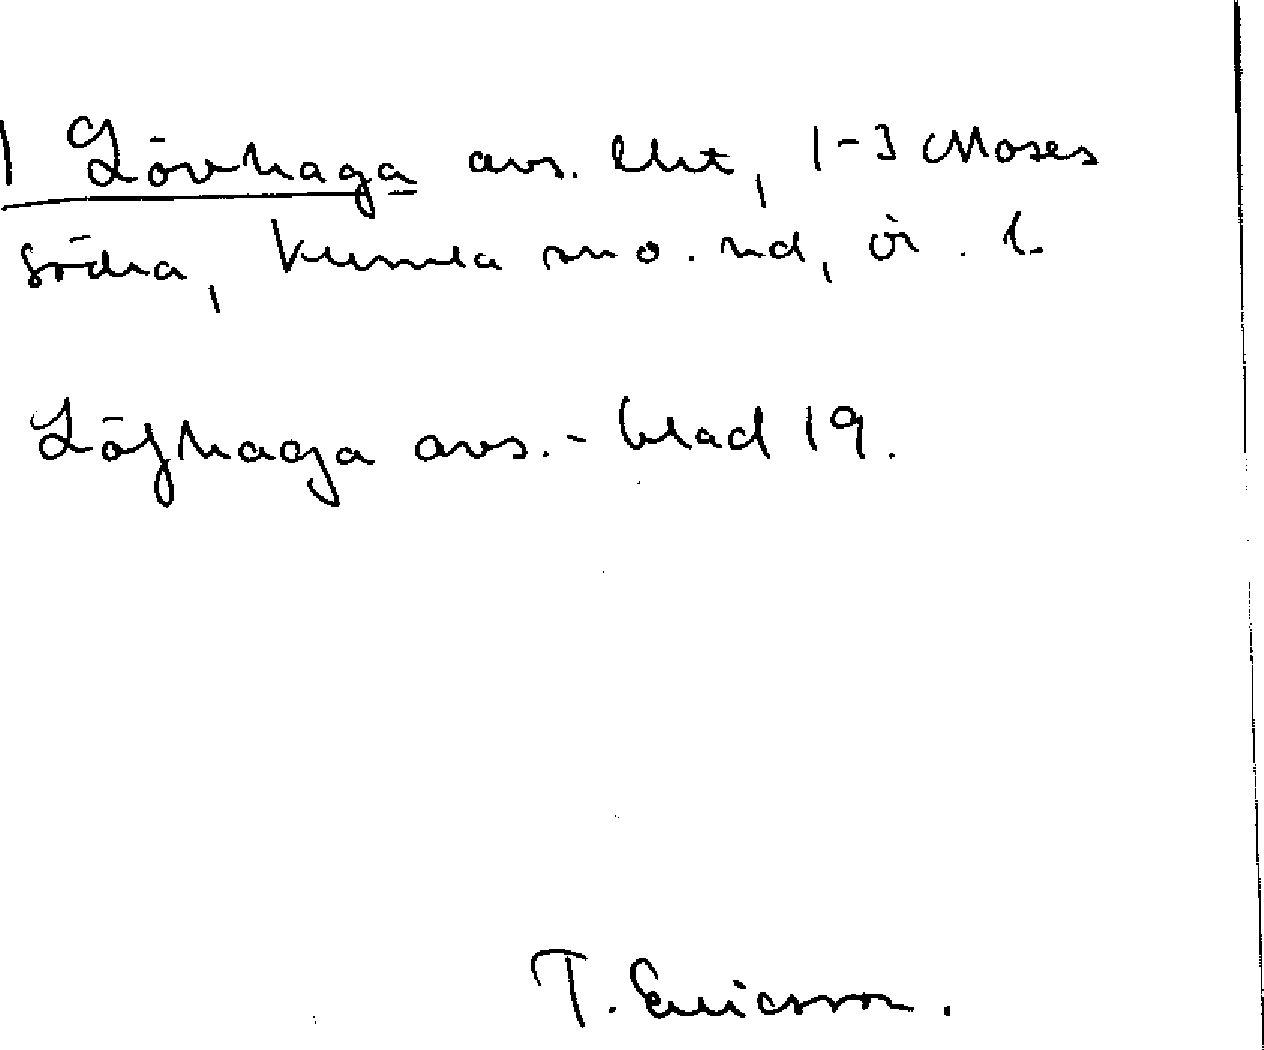 1 Lövhaga avs. lht, 1-3 Moses
södra, Kumla sn o. hd, ör. l.
Löfhaga avs. - blad 19.
T. Ericsson.